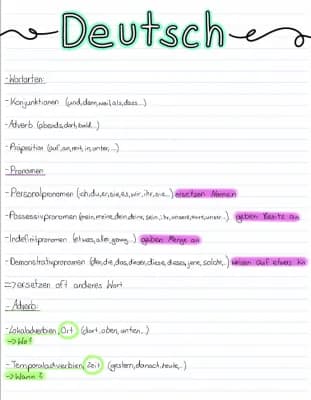 Deutsch
-Wortarten:
-Konjunktionen (und, denn, weil, als, dass...)
-Adverb (abends, dort, bald...)
-Präposition (auf, an, mit, in, unter,...)
-Pronomen
-Personalpronomen (ich, du, er, sie, es, wir, ihr, sie...) ersetzen Nomen
-Possessivpronomen (mein, meine, dein, deine, sein, ihr, unsere, eure, unser...) geben Besitz an
-Indefinitpronomen (etwas, alle, wenig...) geben Menge an
-Demonstrativpronomen (der, die, das, dieser, diese, dieses, jene, solche,..) weisen auf etwas hin
=>ersetzen oft anderes Wort
-Adverb:
-Lokaladverbien, Ort (dort, oben, unten...)
->Wo?
-Temporaladverbien, Zeit (gestern, danach, heute,..)
->Wann?